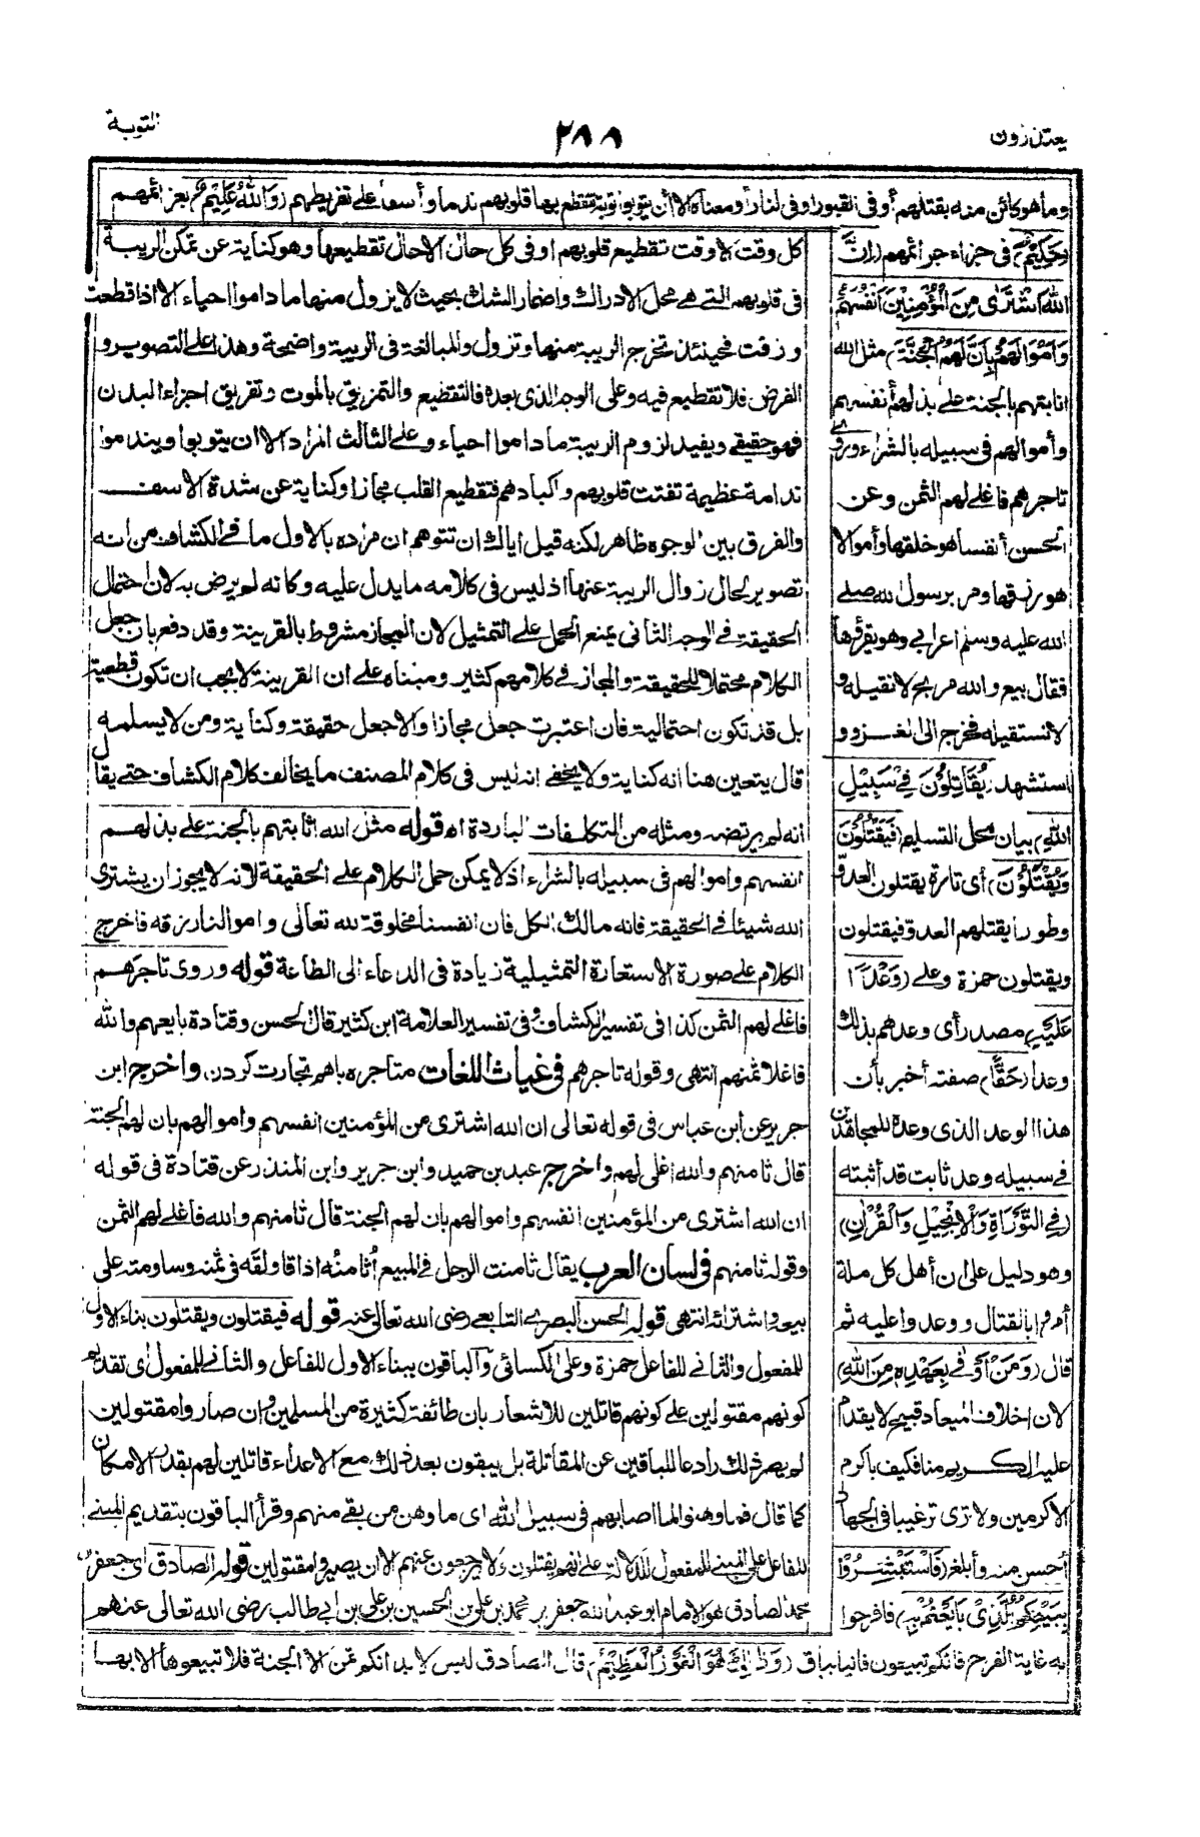 يعتذرون
٢٨٨
التوبة
وما هو كائن منه بقتلهم أو في القبور أو في النار أو معناه الا أن يتوبوا توبة تتقطع بها قلوبهم ندما وأسفا على تفريطهم (والله عليم) بعزائمهم
(حكيم) في جزاء جرائمهم (ان
الله اشترى من المؤمنين أنفسهم
وأموالهم بأن لهم الجنة) مثل الله
اثابتهم بالجنة على بذلهم أنفسهم
وأموالهم في سبيله بالشراء وروى
تاجرهم فاغلى لهم الثمن وعن
الحسن أنفسا هو خلقها وأموالا
هو رزقها ومر برسول الله صلى
الله عليه وسلم اعرابي وهو يقرؤها
فقال بيع والله مربح لا نقيله و
لا نستقيله فخرج الى الغزو و
استشهد (يقاتلون في سبيل
الله) بيان محل التسليم (فيقتلون
ويقتلون) أى تارة يقتلون العدو
وطورا يقتلهم العدو فيقتلون
ويقتلون حمزة وعلى (وعدا
عليه) مصدر أى وعدهم بذلك
وعدا (حقا) صفته أخبر بأن
هذا الوعد الذى وعده للمجاهدين
في سبيله وعد ثابت قد أثبته
(في التوراة والانجيل والقرآن)
وهو دليل على ان أهل كل ملة
أمروا بالقتال ووعدوا عليه ثم
قال (ومن أوفى بعهده من الله)
لان اخلاف الميعاد قبيح لا يقدم
عليه الكريم منا فكيف باكرم
الاكرمين ولا ترى ترغيبا في الجهاد
أحسن منه وأبلغ (فاستبشروا
ببيعكم الذى بايعتم به) فافرحوا
كل وقت الا وقت تقطيع قلوبهم او في كل حال الا حال تقطيعها وهو كناية عن تمكن الريبة
في قلوبهم التي هي محل الادراك واضمار الشك بحيث لا يزول منها ما داموا احياء الا اذا قطعت
وزقت فحينئذ تخرج الريبة منها وتزول والمبالغة في الريبة واضحة وهذا على التصوير و
الفرض فلا تقطيع فيه وعلى الوجه الذى بعده فالتقطيع والتمزيق بالموت وتفريق اجزاء البدن
فهو حقيقي ويفيد لزوم الريبة ما داموا احياء وعلى الثالث المراد الا ان يتوبوا ويندموا
ندامة عظيمة تفتت قلوبهم واكبادهم فتقطيع القلب مجاز او كناية عن شدة الاسف
والفرق بين الوجوه ظاهر لكنه قيل اياك ان تتوهم ان مراده بالاول ما في الكشاف من انه
تصوير لحال زوال الريبة عنها اذ ليس في كلامه ما يدل عليه وكانه لم يرض به لان احتمال
الحقيقة في الوجه الثاني يمنع الحمل على التمثيل لان المجاز مشروط بالقرينة وقد دفع بان جعل
الكلام محتملا للحقيقة والمجاز في كلامهم كثير ومبناه على ان القرينة لا يجب ان تكون قطعية
بل قد تكون احتمالية فان اعتبرت جعل مجازا والا جعل حقيقة وكناية ومن لا يسلمه
قال يتعين هنا انه كناية ولا يخفى انه ليس في كلام المصنف ما يخالف كلام الكشاف حتى يقال
انه لم يرتضه ومثله من التكلفات الباردة اه قوله مثل الله اثابتهم بالجنة على بذلهم
انفسهم واموالهم في سبيله بالشراء اذ لا يمكن حمل الكلام على الحقيقة لانه لا يجوز ان يشترى
الله شيئا في الحقيقة فانه مالك الكل فان انفسنا مخلوقة لله تعالى واموالنا رزقه فاخرج
الكلام على صورة الاستعارة التمثيلية زيادة في الدعاء الى الطاعة قوله وروى تاجرهم
فاغلى لهم الثمن كذا في تفسير الكشاف وفي تفسير العلامة ابن كثير قال الحسن وقتادة بايعهم والله
فاغلا ثمنهم انتهى وقوله تاجرهم في غياث اللغات متاجره باهم تجارت كردن، واخرج ابن
جرير عن ابن عباس في قوله تعالى ان الله اشترى من المؤمنين انفسهم واموالهم بان لهم الجنة
قال ثامنهم والله اغلى لهم واخرج عبد بن حميد وابن جرير وابن المنذر عن قتادة في قوله
ان الله اشترى من المؤمنين انفسهم واموالهم بان لهم الجنة قال ثامنهم والله فاغلى لهم الثمن
وقوله ثامنهم في لسان العرب يقال ثامنت الرجل في المبيع أثامنه اذا قاولته في ثمنه وساومته على
بيعه واشترائه انتهى قوله الحسن البصري التابعي رضى الله تعالى عنه قوله فيقتلون ويقتلون بناء الاول
للمفعول والثاني للفاعل حمزة وعلى الكسائي والباقون ببناء الاول للفاعل والثاني للمفعول اى تقديم
كونهم مقتولين على كونهم قاتلين للاشعار بان طائفة كثيرة من المسلمين وان صاروا مقتولين
لم يصر ذلك رادعا للباقين عن المقاتلة بل يبقون بعد ذلك مع الاعداء قاتلين لهم بقدر الامكان
كما قال فما وهنوا لما اصابهم في سبيل الله اى ما وهن من بقى منهم وقرأ الباقون بتقديم المبنى
للفاعل على المبنى للمفعول للدلالة على انهم يقتلون ولا يرجعون عنهم الا ان يصيروا مقتولين قوله الصادق اى جعفر بن
محمد الصادق هو الامام ابو عبد الله جعفر بن محمد بن على بن الحسين بن على بن ابى طالب رضى الله تعالى عنهم
به غاية الفرح فانكم تبيعون فانيا بباق (وذلك هو الفوز العظيم) قال الصادق ليس لابدانكم ثمن الا الجنة فلا تبيعوها الا بها